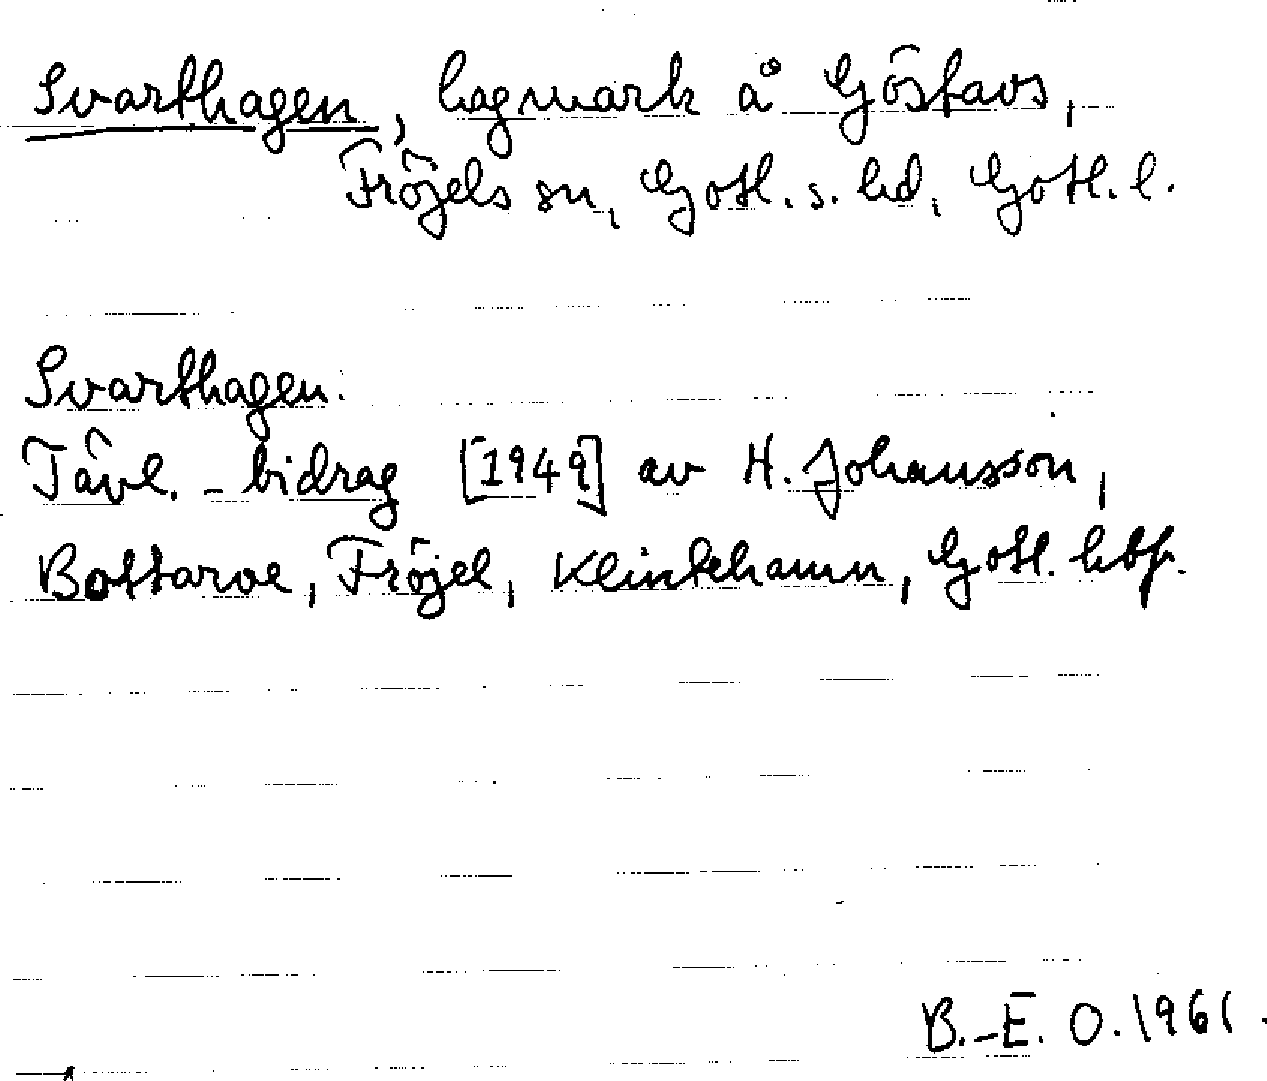 Svarthagen, hagmark å Göstavs,
Fröjels sn, Gotl. s. hd, Gotl. l.
Svarthagen:
Tävl.-bidrag [1949] av H. Johansson,
Bottarve, Fröjel, Klintehamn, Gotl. hbf.
B.-E. O. 1961.